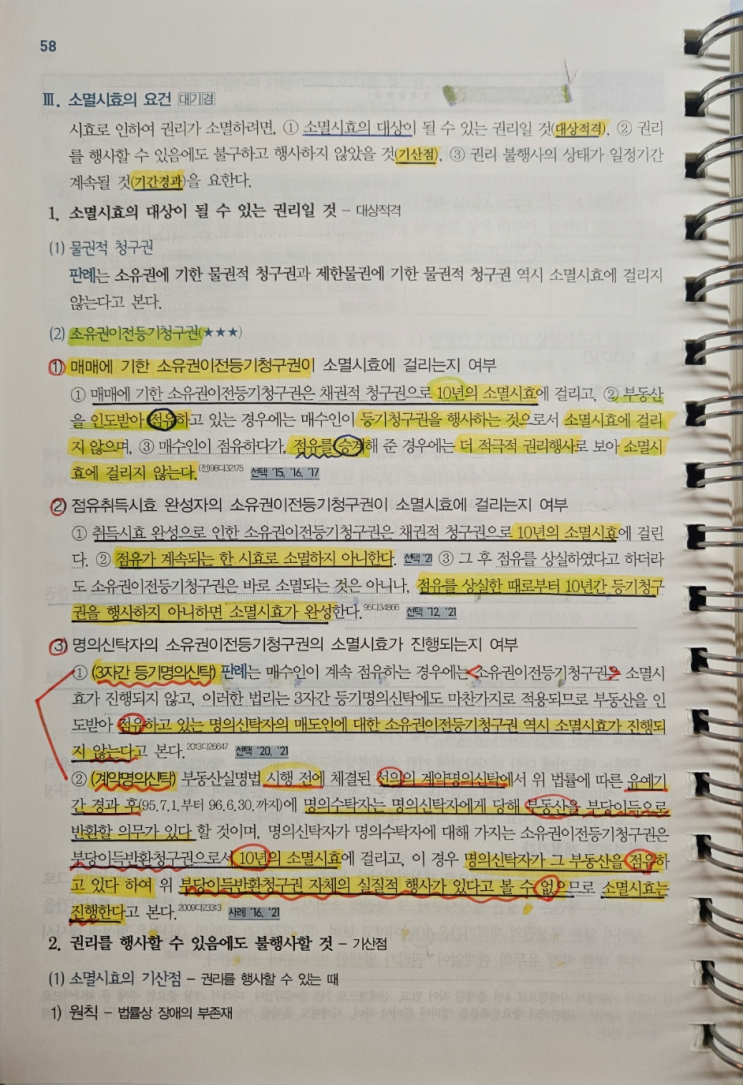 58
Ⅲ. 소멸시효의 요건 대기경
시효로 인하여 권리가 소멸하려면, ① 소멸시효의 대상이 될 수 있는 권리일 것(대상적격), ② 권리
를 행사할 수 있음에도 불구하고 행사하지 않았을 것(기산점), ③ 권리 불행사의 상태가 일정기간
계속될 것(기간경과)을 요한다.
1. 소멸시효의 대상이 될 수 있는 권리일 것 – 대상적격
(1) 물권적 청구권
판례는 소유권에 기한 물권적 청구권과 제한물권에 기한 물권적 청구권 역시 소멸시효에 걸리지
않는다고 본다.
(2) 소유권이전등기청구권(★★★)
1) 매매에 기한 소유권이전등기청구권이 소멸시효에 걸리는지 여부
① 매매에 기한 소유권이전등기청구권은 채권적 청구권으로 10년의 소멸시효에 걸리고, ② 부동산
을 인도받아 점유하고 있는 경우에는 매수인이 등기청구권을 행사하는 것으로서 소멸시효에 걸리
지 않으며, ③ 매수인이 점유하다가, 점유를 승계해 준 경우에는 더 적극적 권리행사로 보아 소멸시
효에 걸리지 않는다.(전)98다32175 선택 '15, '16, '17
2) 점유취득시효 완성자의 소유권이전등기청구권이 소멸시효에 걸리는지 여부
① 취득시효 완성으로 인한 소유권이전등기청구권은 채권적 청구권으로 10년의 소멸시효에 걸린
다. ② 점유가 계속되는 한 시효로 소멸하지 아니한다. 선택 '21 ③ 그 후 점유를 상실하였다고 하더라
도 소유권이전등기청구권은 바로 소멸되는 것은 아니나, 점유를 상실한 때로부터 10년간 등기청구
권을 행사하지 아니하면 소멸시효가 완성한다. 95다34866 선택 '12, '21
3) 명의신탁자의 소유권이전등기청구권의 소멸시효가 진행되는지 여부
① (3자간 등기명의신탁) 판례는 매수인이 계속 점유하는 경우에는 소유권이전등기청구권은 소멸시
효가 진행되지 않고, 이러한 법리는 3자간 등기명의신탁에도 마찬가지로 적용되므로 부동산을 인
도받아 점유하고 있는 명의신탁자의 매도인에 대한 소유권이전등기청구권 역시 소멸시효가 진행되
지 않는다고 본다. 2013다26647 선택 '20, '21
② (계약명의신탁) 부동산실명법 시행 전에 체결된 선의의 계약명의신탁에서 위 법률에 따른 유예기
간 경과 후(95.7.1.부터 96.6.30.까지)에 명의수탁자는 명의신탁자에게 당해 부동산을 부당이득으로
반환할 의무가 있다 할 것이며, 명의신탁자가 명의수탁자에 대해 가지는 소유권이전등기청구권은
부당이득반환청구권으로서 10년의 소멸시효에 걸리고, 이 경우 명의신탁자가 그 부동산을 점유하
고 있다 하여 위 부당이득반환청구권 자체의 실질적 행사가 있다고 볼 수 없으므로 소멸시효는
진행한다고 본다. 2009다23313 사례 '16, '21
2. 권리를 행사할 수 있음에도 불행사할 것 – 기산점
(1) 소멸시효의 기산점 – 권리를 행사할 수 있는 때
1) 원칙 – 법률상 장애의 부존재